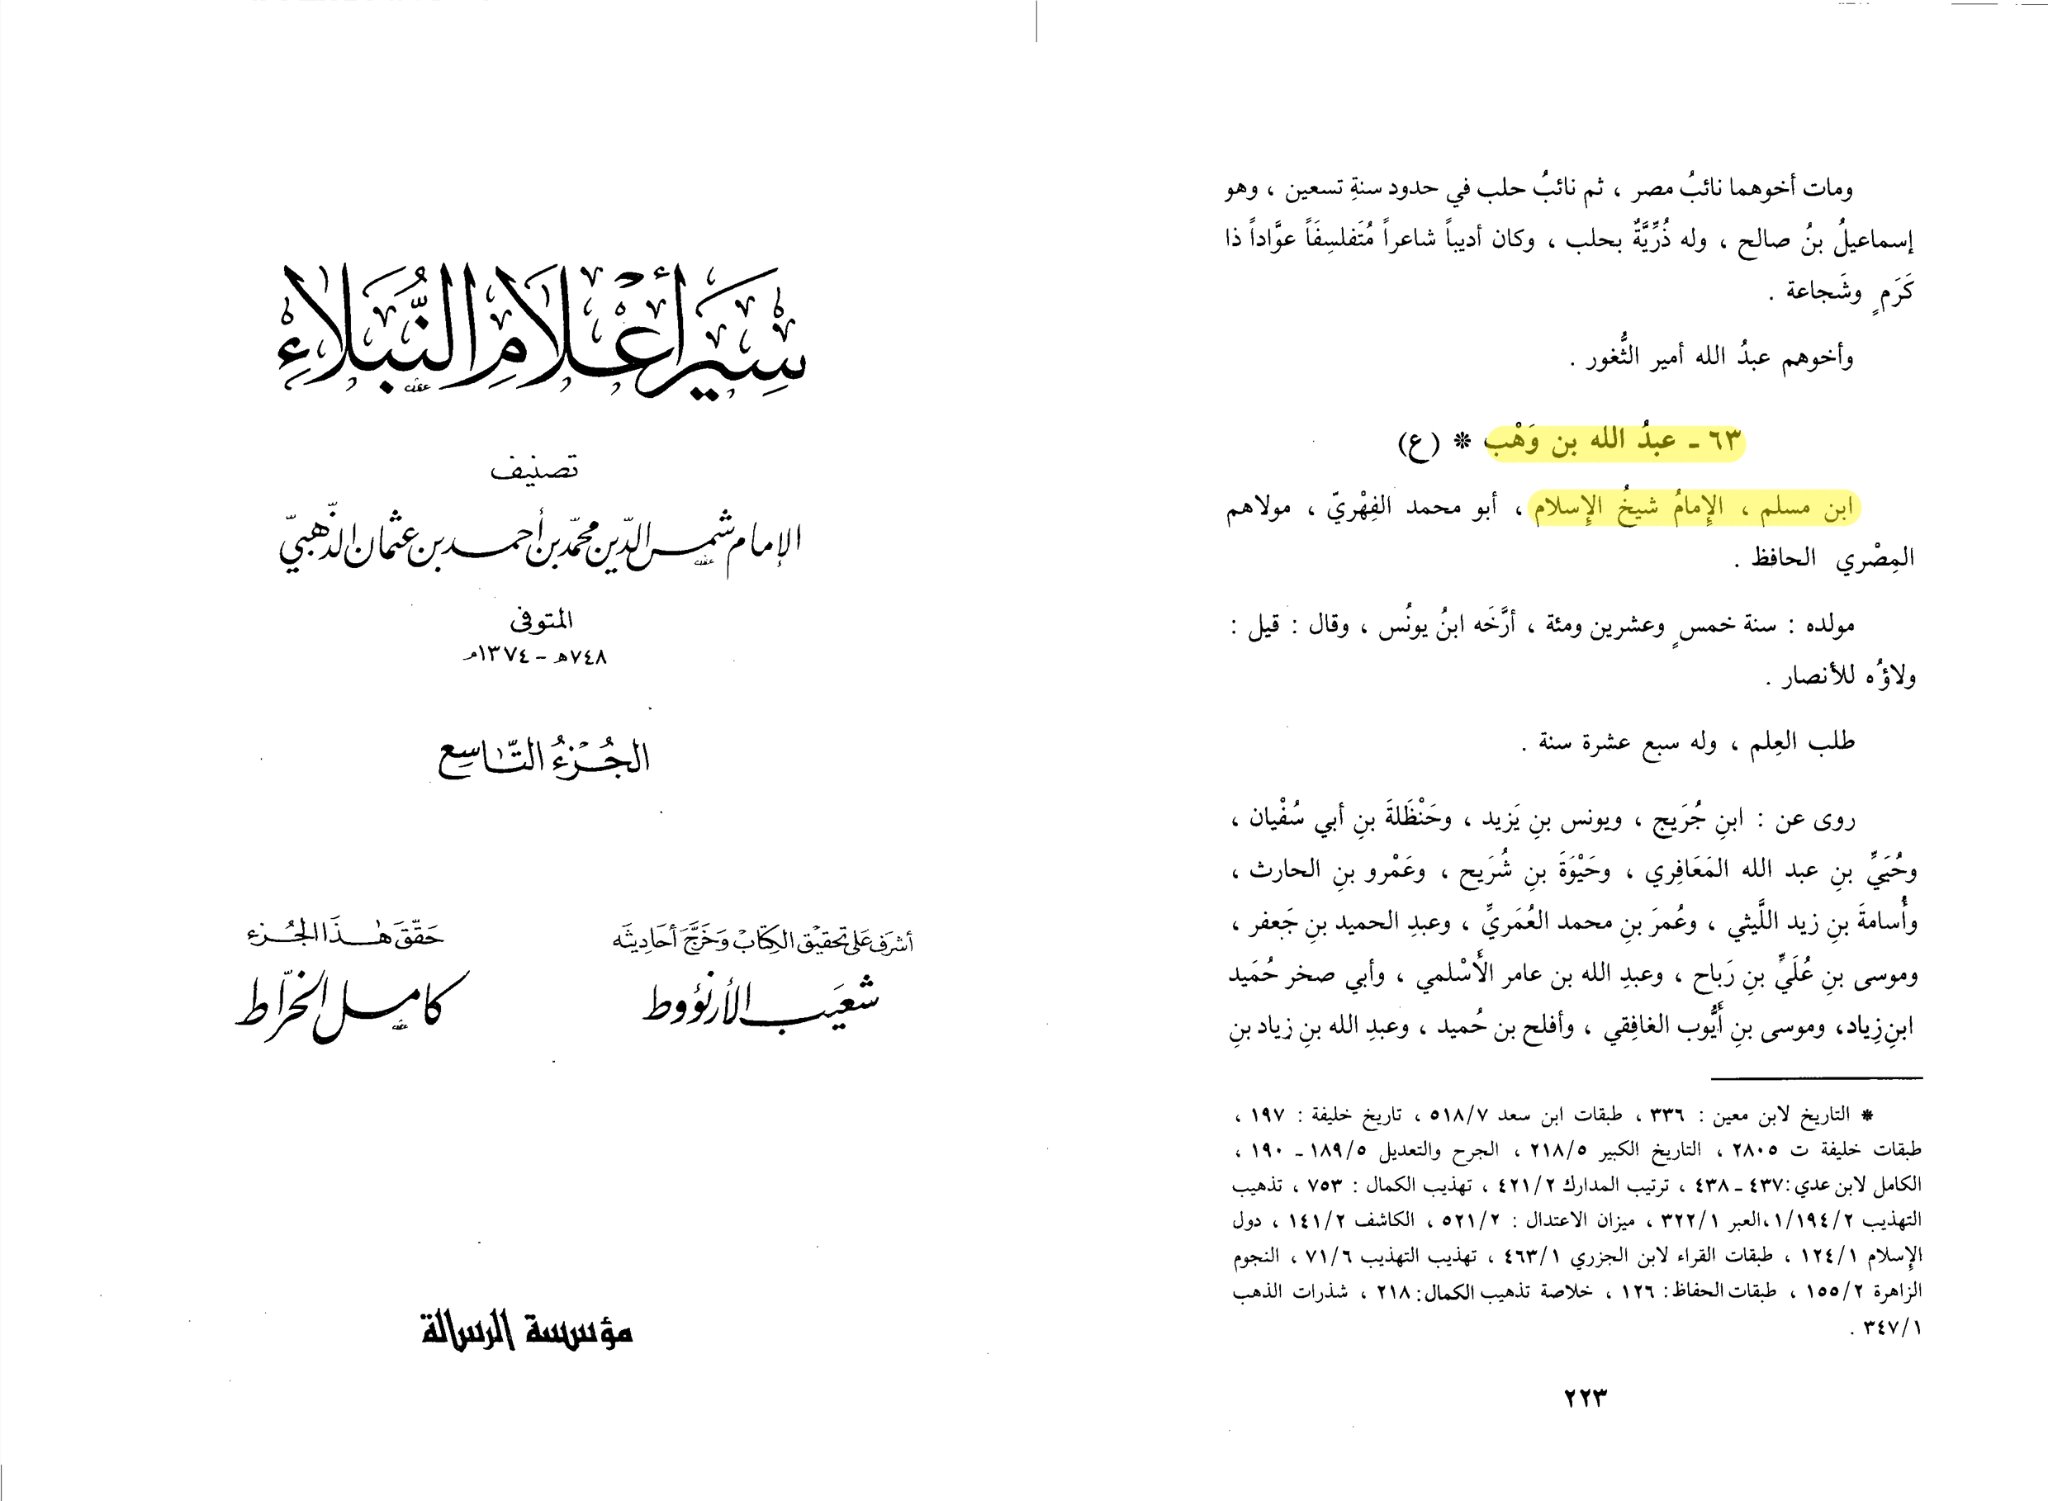 سِيَر أَعْلَامِ النُّبَلَاءِ
تصنيف
الإمام شمس الدّين محمّد بن أحمد بن عثمان الذّهبيّ
المتوفى
٧٤٨هـ - ١٣٧٤م
الجُزْءُ التَّاسِع
أشرَف عَلى تحقيق الكِتَاب وَخَرَّجَ أحَاديثَه
شعَيب الأرنؤوط
حَقّقَ هٰذَا الجُزء
كامل الخرّاط
مؤسسة الرسالة
ومات أخوهما نائبُ مصر ، ثم نائبُ حلب في حدود سنةِ تسعين ، وهو
إسماعيلُ بنُ صالح ، وله ذُرِّيَّةٌ بحلب ، وكان أديباً شاعراً مُتَفلسِفَاً عوَّاداً ذا
كَرَمٍ وشَجاعة .
وأخوهم عبدُ الله أمير الثُّغور .
٦٣ ـ عبدُ الله بن وَهْب * (ع)
ابن مسلم ، الإِمامُ شيخُ الإِسلام ، أبو محمد الفِهْريّ ، مولاهم
المِصْري الحافظ .
مولده : سنة خمسٍ وعشرين ومئة ، أرَّخَه ابنُ يونُس ، وقال : قيل :
ولاؤُه للأنصار .
طلب العِلم ، وله سبع عشرة سنة .
روى عن : ابنِ جُرَيج ، ويونس بنِ يَزيد ، وحَنْظَلةَ بنِ أبي سُفْيان ،
وحُيَيِّ بنِ عبد الله المَعَافِري ، وحَيْوَةَ بنِ شُرَيح ، وعَمْرو بنِ الحارث ،
وأُسامةَ بنِ زيد اللَّيثي ، وعُمرَ بنِ محمد العُمَريِّ ، وعبدِ الحميد بنِ جَعفر ،
وموسى بنِ عُلَيِّ بنِ رَباح ، وعبدِ الله بن عامر الأَسْلمي ، وأبي صخر حُمَيد
ابنِ زِياد، وموسى بنِ أَيُّوب الغافِقي ، وأفلح بن حُميد ، وعبدِ الله بنِ زِياد بنِ
* التاريخ لابن معين : ٣٣٦ ، طبقات ابن سعد ٥١٨/٧ ، تاريخ خليفة : ١٩٧ ،
طبقات خليفة ت ٢٨٠٥ ، التاريخ الكبير ٢١٨/٥ ، الجرح والتعديل ١٨٩/٥ ـ ١٩٠ ،
الكامل لابن عدي: ٤٣٧ ـ ٤٣٨ ، ترتيب المدارك ٤٢١/٢ ، تهذيب الكمال : ٧٥٣ ، تذهيب
التهذيب ١/١٩٤/٢ ،العبر ٣٢٢/١ ، ميزان الاعتدال : ٥٢١/٢ ، الكاشف ١٤١/٢ ، دول
الإِسلام ١٢٤/١ ، طبقات القراء لابن الجزري ٤٦٣/١ ، تهذيب التهذيب ٧١/٦ ، النجوم
الزاهرة ١٥٥/٢ ، طبقات الحفاظ: ١٢٦ ، خلاصة تذهيب الكمال: ٢١٨ ، شذرات الذهب
٣٤٧/١ .
٢٢٣